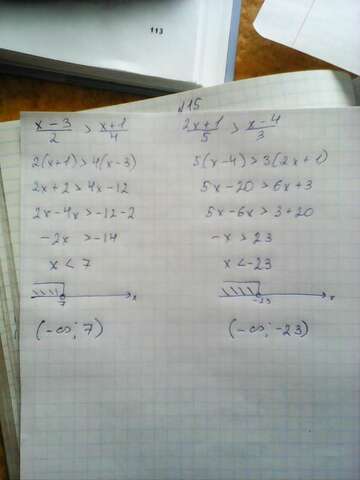 113
№15
x-3/2 > x+1/4
2(x+1)>4(x-3)
2x+2>4x-12
2x-4x>-12-2
-2x>-14
x<7
7 x
(-∞; 7)
2x+1/5 > x-4/3
5(x-4)>3(2x+1)
5x-20>6x+3
5x-6x>3+20
-x>23
x<-23
-23 x
(-∞; -23)